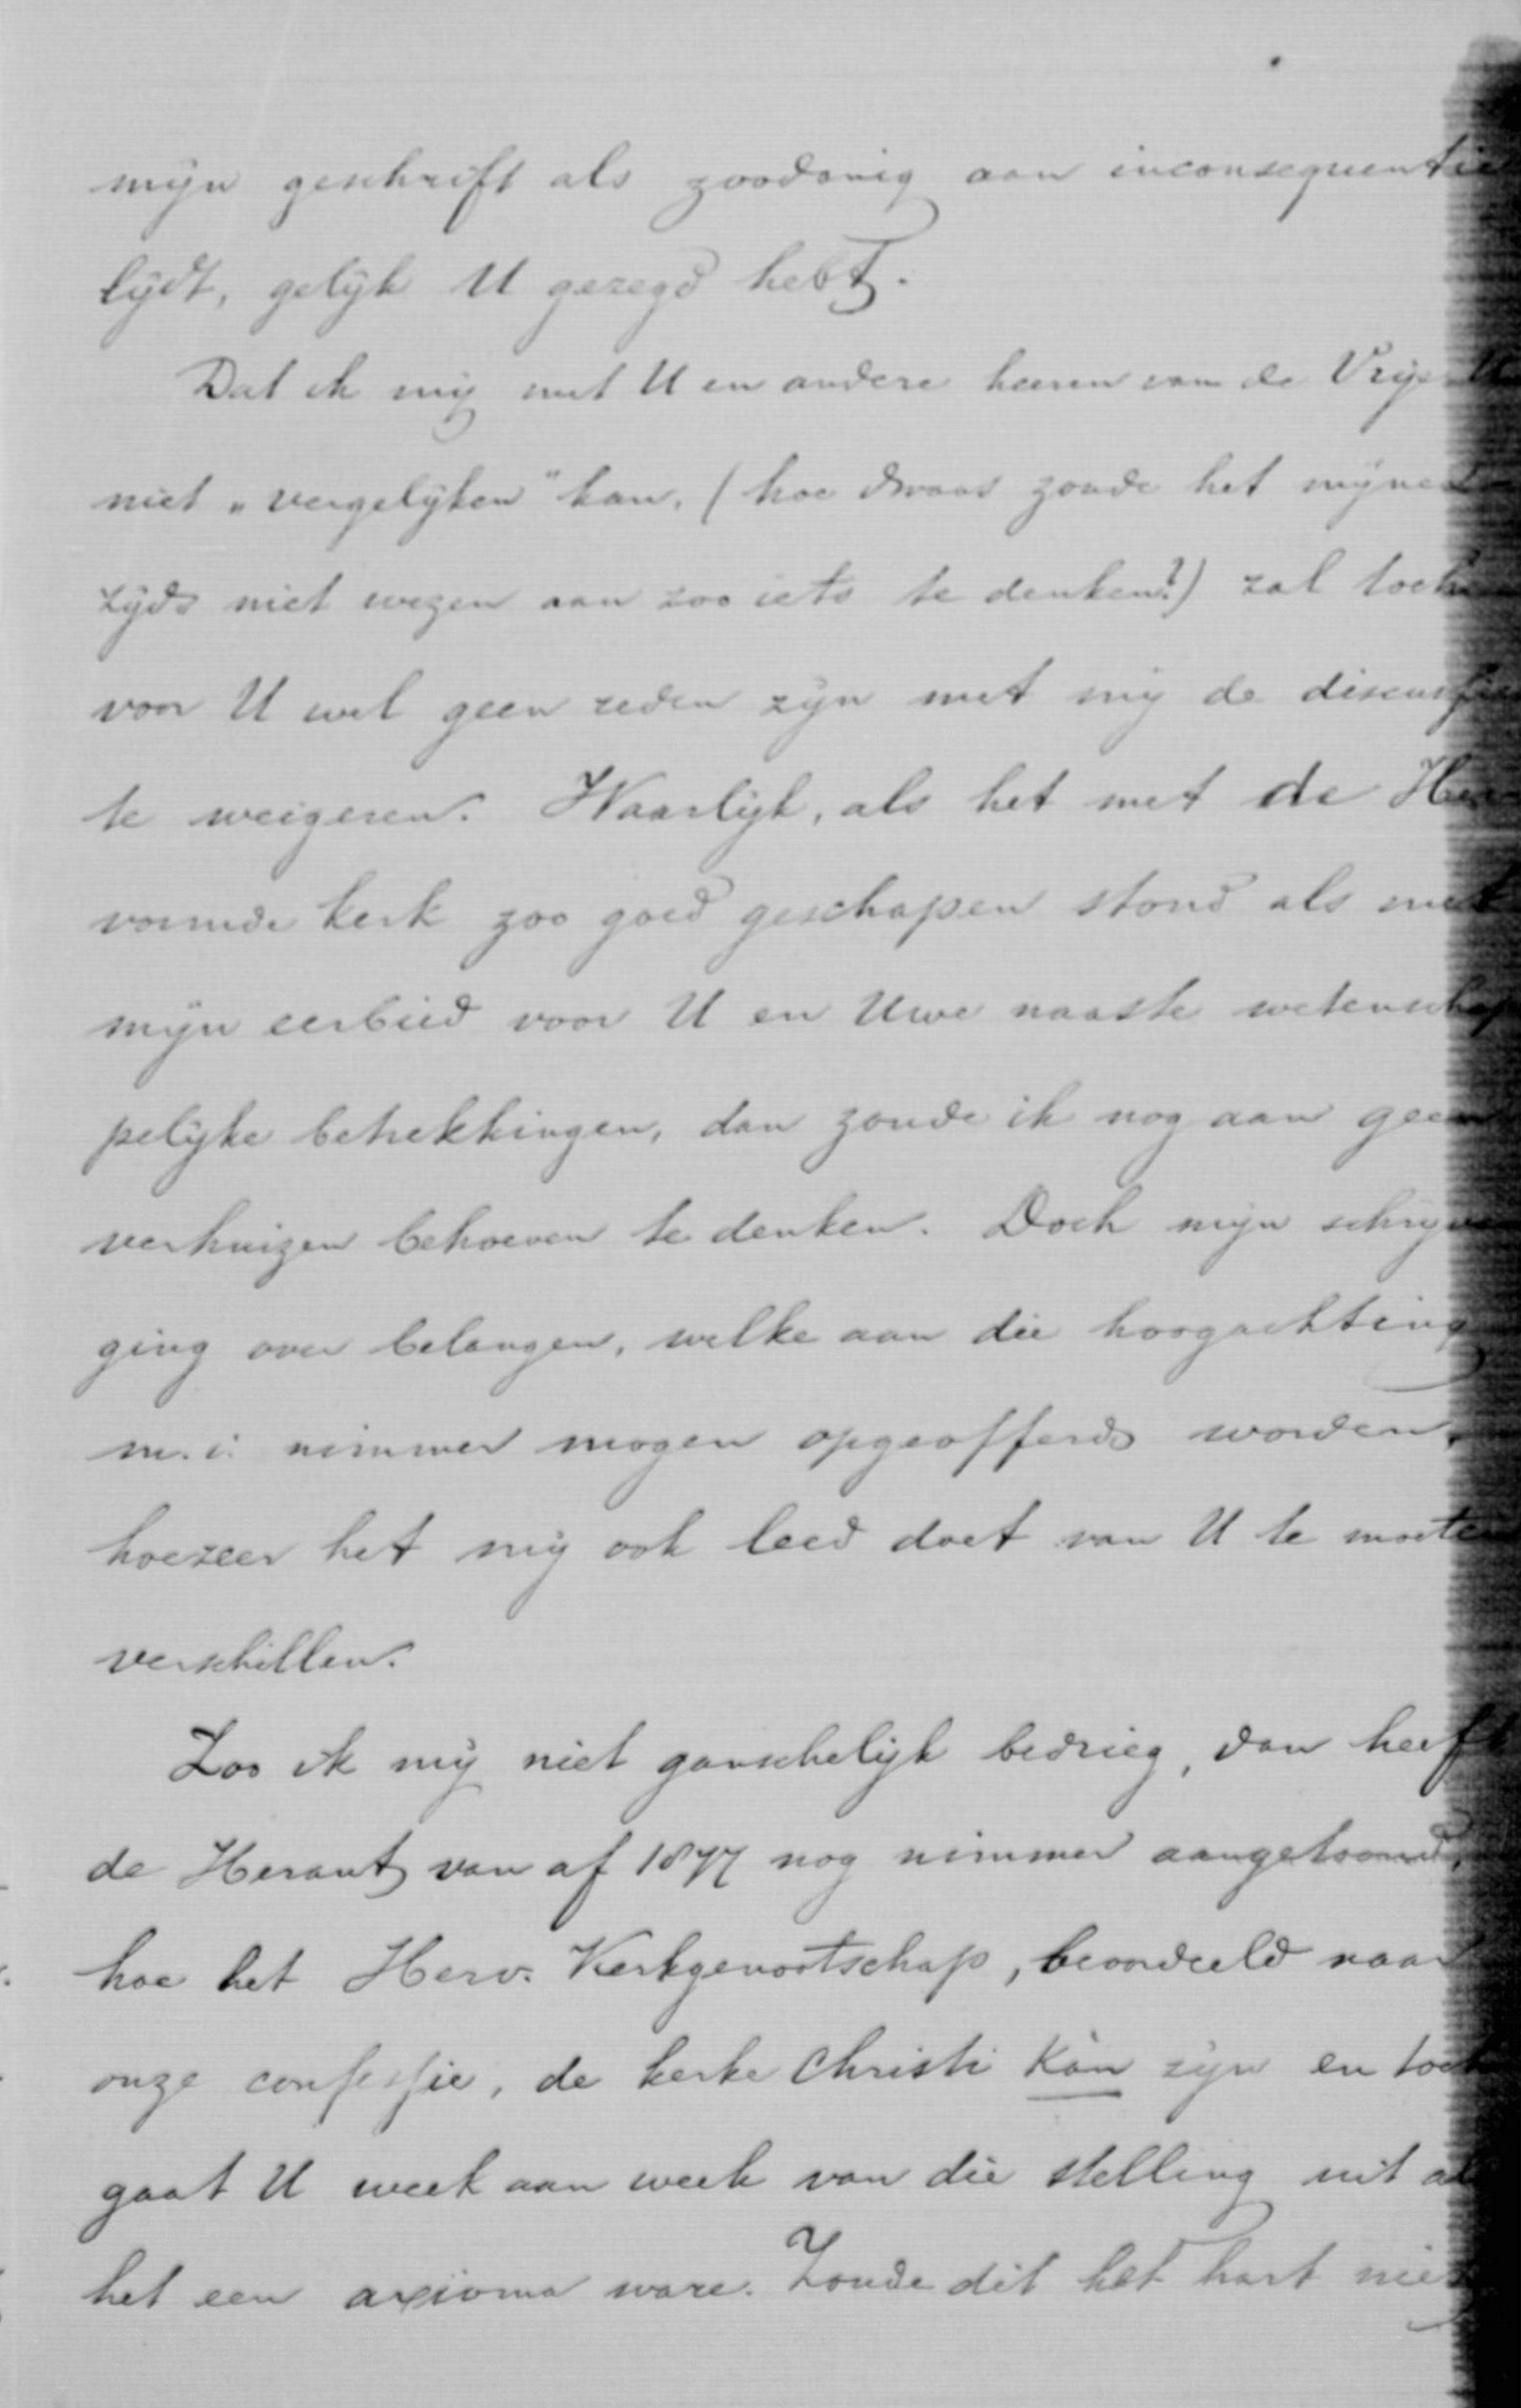 mijn geschrift als zoodanig aan inconsequentie
lijdt, gelijk U gezegd hebt.
Dat ik mij met U en andere heeren van de Vrije
niet „vergelijken" kan, (hoe dwaas zoude het mijner
zijds niet wezen aan zoo iets te denken?) zal toch
voor U wel geen reden zijn met mij de discussie
te weigeren. Waarlijk, als het met de Her
vormde kerk zoo goed geschapen stond als met
mijn eerbied voor U en Uwe naaste wetenschap
pelijke betrekkingen, dan zoude ik nog aan geen
verhuizen behoeven te denken. Doch mijn schrijven
ging over belangen, welke aan die hoogachting
m. i. nimmer mogen opgeofferd worden,
hoezeer het mij ook leed doet van U te moeten
verschillen.
Zoo ik mij niet ganschelijk bedrieg, dan heeft
de Heraut van af 1877 nog nimmer aangetoond,
hoe het Herv. Kerkgenootschap, beoordeeld naar
onze confessie, de kerke Christi kàn zijn en toch
gaat U week aan week van die stelling uit als
het een axioma ware. Zoude dit het hart niet